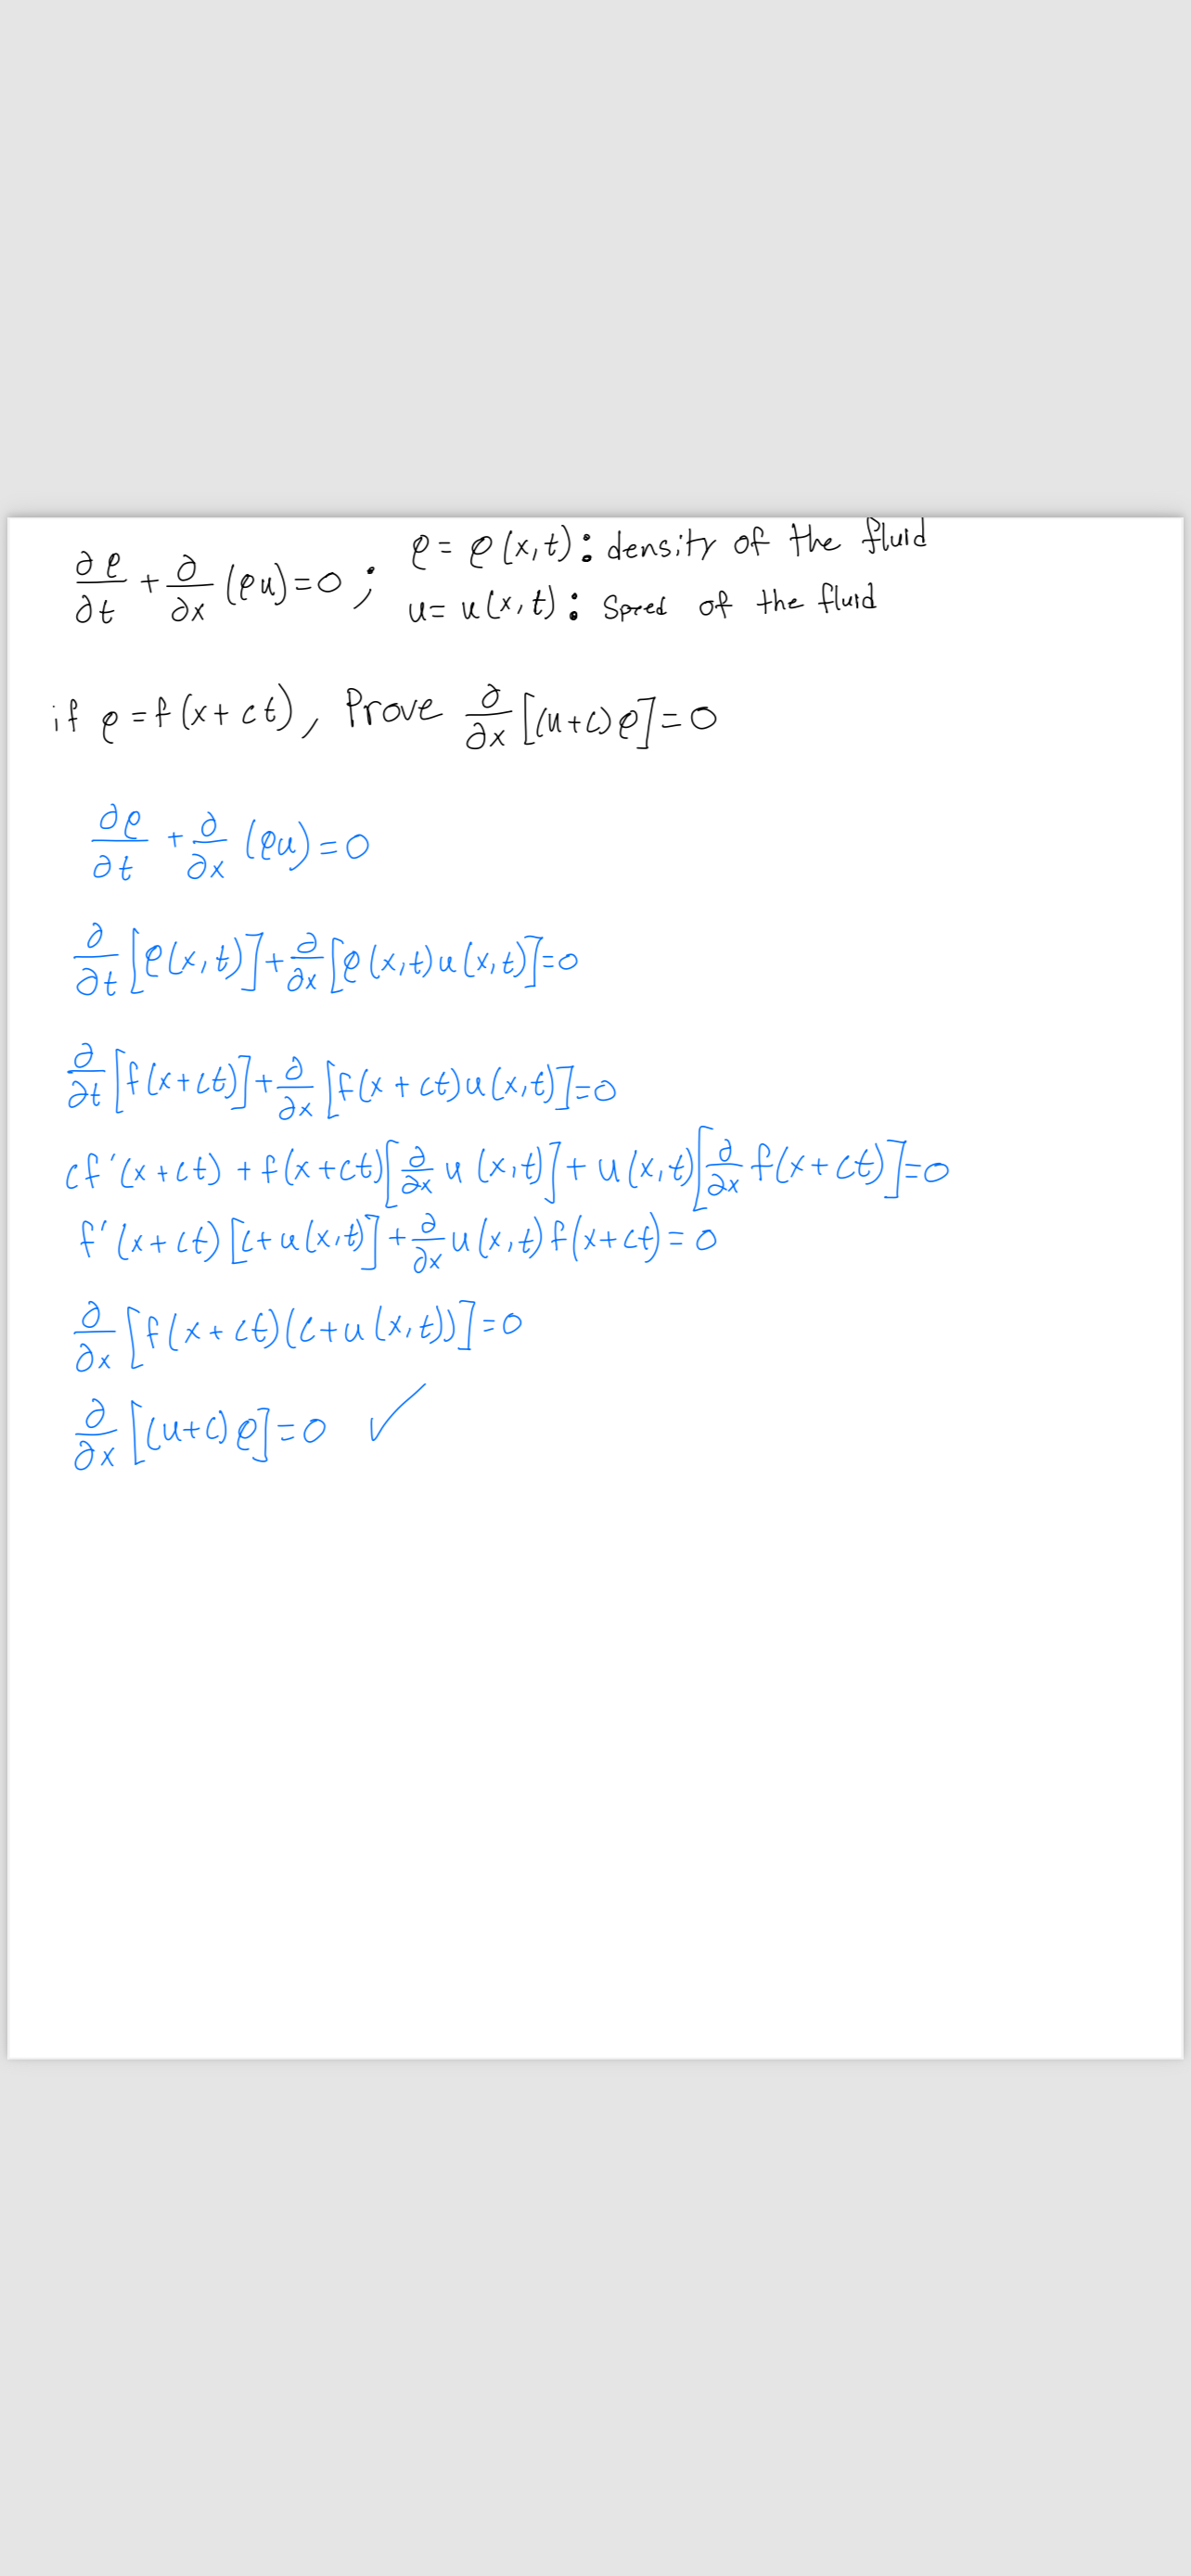 ∂ρ/∂t + ∂/∂x (ρu) = 0 ;
ρ = ρ(x,t) : density of the fluid
u = u(x,t) : Speed of the fluid
if ρ = f(x + ct), Prove ∂/∂x [(u+c)ρ] = 0
∂ρ/∂t + ∂/∂x (ρu) = 0
∂/∂t [ρ(x,t)] + ∂/∂x [ρ(x,t)u(x,t)] = 0
∂/∂t [f(x+ct)] + ∂/∂x [f(x + ct)u(x,t)] = 0
cf'(x+ct) + f(x+ct)[∂/∂x u(x,t)] + u(x,t)[∂/∂x f(x+ct)] = 0
f'(x+ct)[c+u(x,t)] + ∂/∂x u(x,t)f(x+ct) = 0
∂/∂x [f(x+ct)(c+u(x,t))] = 0
∂/∂x [(u+c)ρ] = 0 ✓